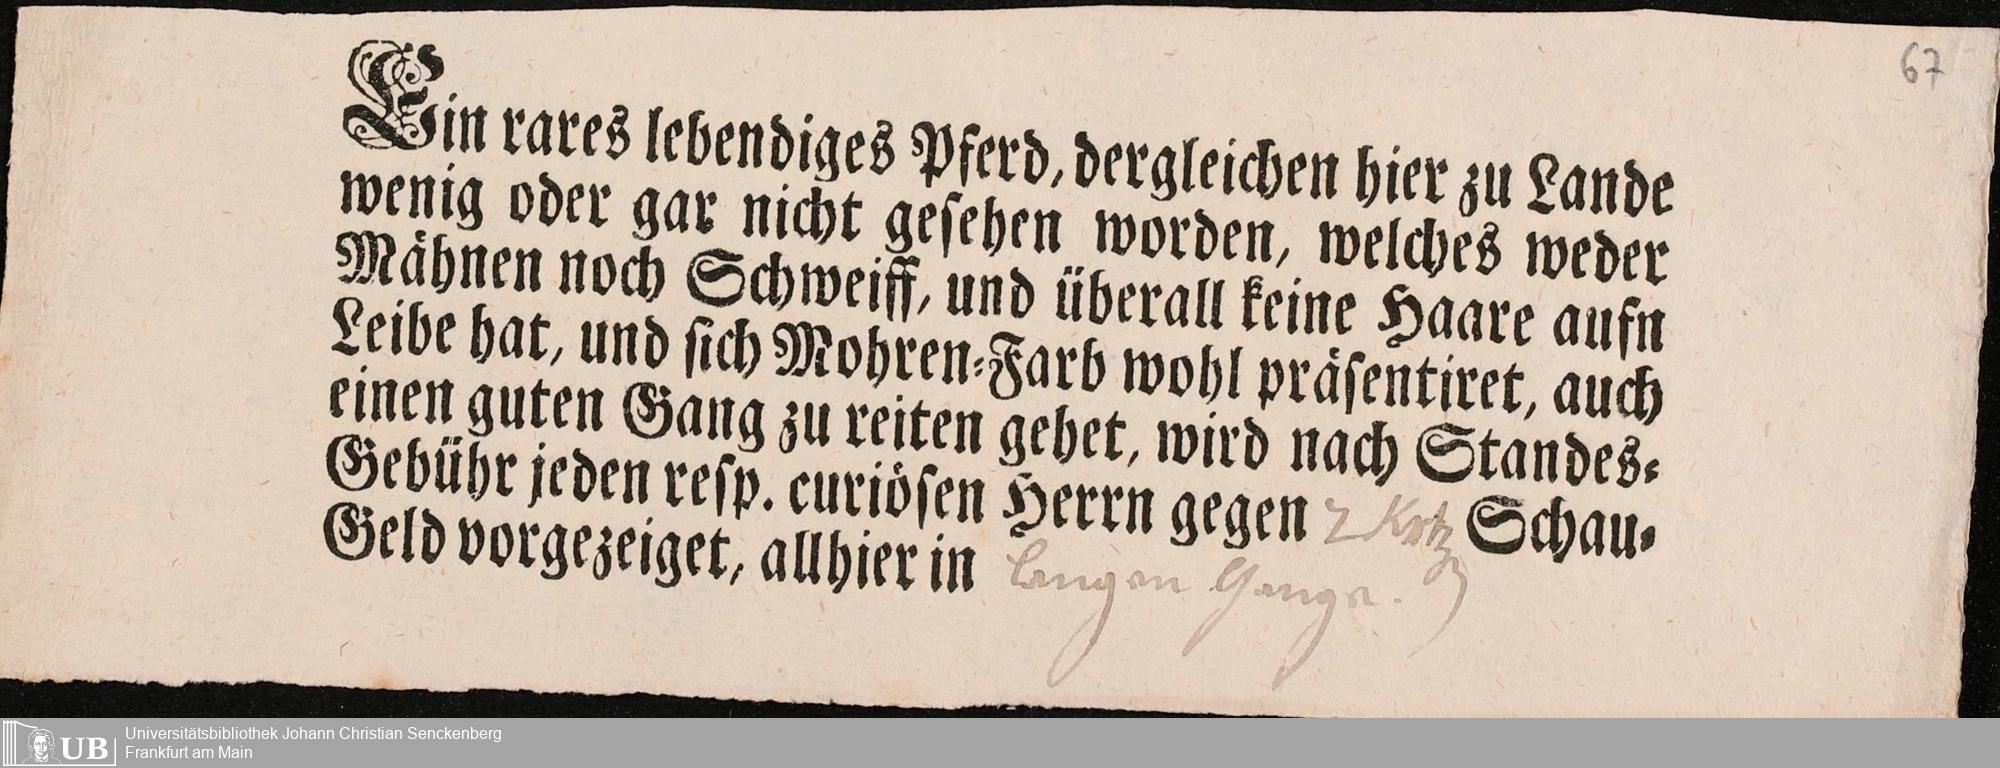 67
Ein rares lebendiges Pferd, dergleichen hier zu Lande
wenig oder gar nicht gesehen worden, welches weder
Mähnen noch Schweiff, und überall keine Haare aufn
Leibe hat, und sich Mohren-Farb wohl präsentiret, auch
einen guten Gang zu reiten gehet, wird nach Standes-
Gebühr jeden resp. curiösen Herrn gegen 2 Schau-
Geld vorgezeiget, allhier in langen Gange.
UB
Universitätsbibliothek Johann Christian Senckenberg
Frankfurt am Main